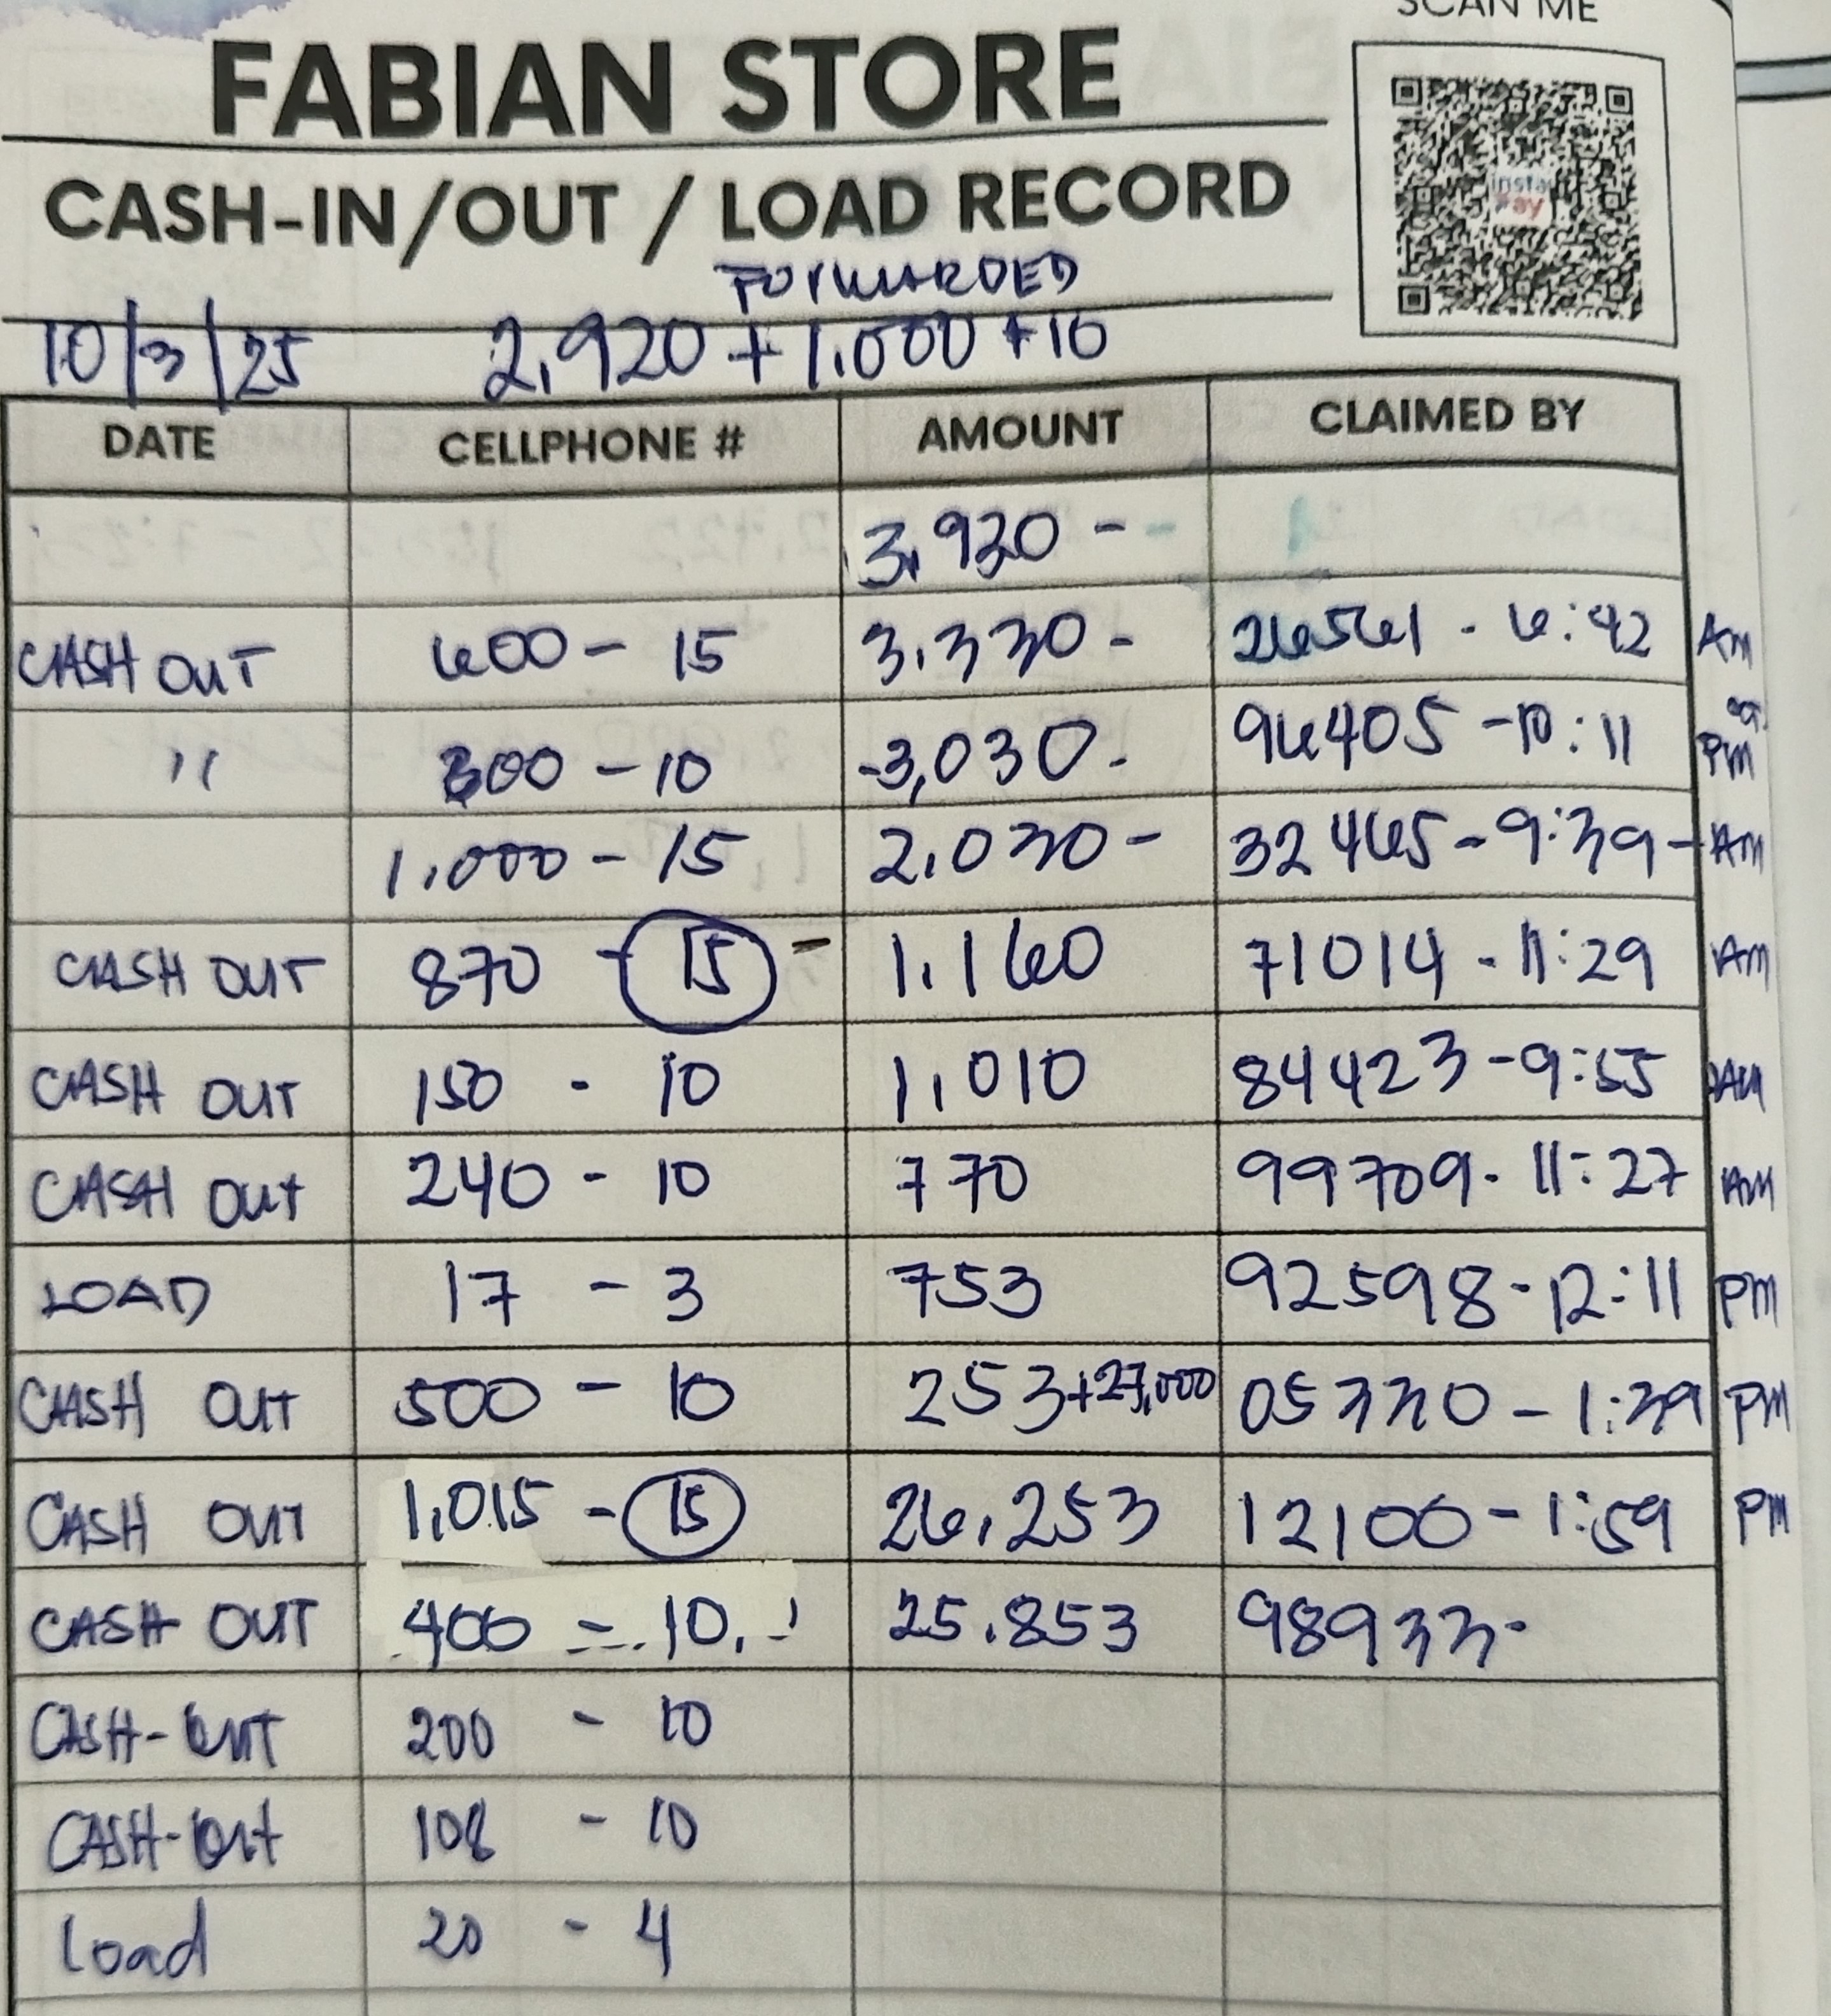 SCAN ME
FABIAN STORE
CASH-IN/OUT / LOAD RECORD
FORWARDED
10/3/25 2,920 + 1,000 + 10
DATE CELLPHONE # AMOUNT CLAIMED BY
3,930 -
CASH OUT 600 - 15 3,330 - 26561 - 6:42 AM
" 300 - 10 -3,030 - 96405 - 10:11 PM
1,000 - 15 2,030 - 32465 - 9:39 - AM
CASH OUT 870 - 15 - 1,160 71014 - 11:29 AM
CASH OUT 150 - 10 1,010 84423 - 9:55 AM
CASH OUT 240 - 10 770 99709 - 11:27 AM
LOAD 17 - 3 753 92598 - 12:11 PM
CASH OUT 500 - 10 253 + 27,000 05330 - 1:39 PM
CASH OUT 1,015 - 15 26,253 12100 - 1:59 PM
CASH OUT 400 - 10 25,853 98933 -
CASH-OUT 200 - 10
CASH-OUT 108 - 10
Load 20 - 4